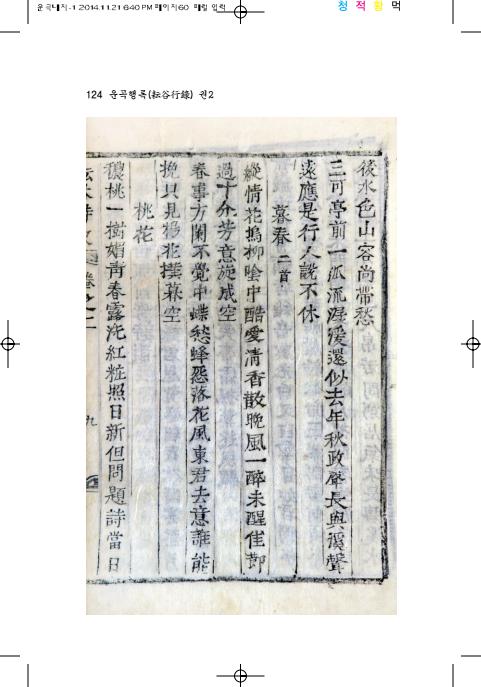 운곡내지-1 2014.11.21 6:40 PM 페이지60 매일 입력
청 적 황 먹
124 운곡행록(耘谷行錄) 권2
後水色山容尚帶愁
三可亭前一派流潺湲還似去年秋政聲長與溪聲
遠應是行人說不休
暮春 二首
縱情花塢柳陰中酷愛清香散晚風一醉未醒佳節
過十分芳意旋成空
春事方闌不覺中蝶愁蜂怨落花風東君去意誰能
挽只見楊花撲幕空
桃花
穠桃一樹媚靑春露洗紅粧照日新但問題詩當日
九